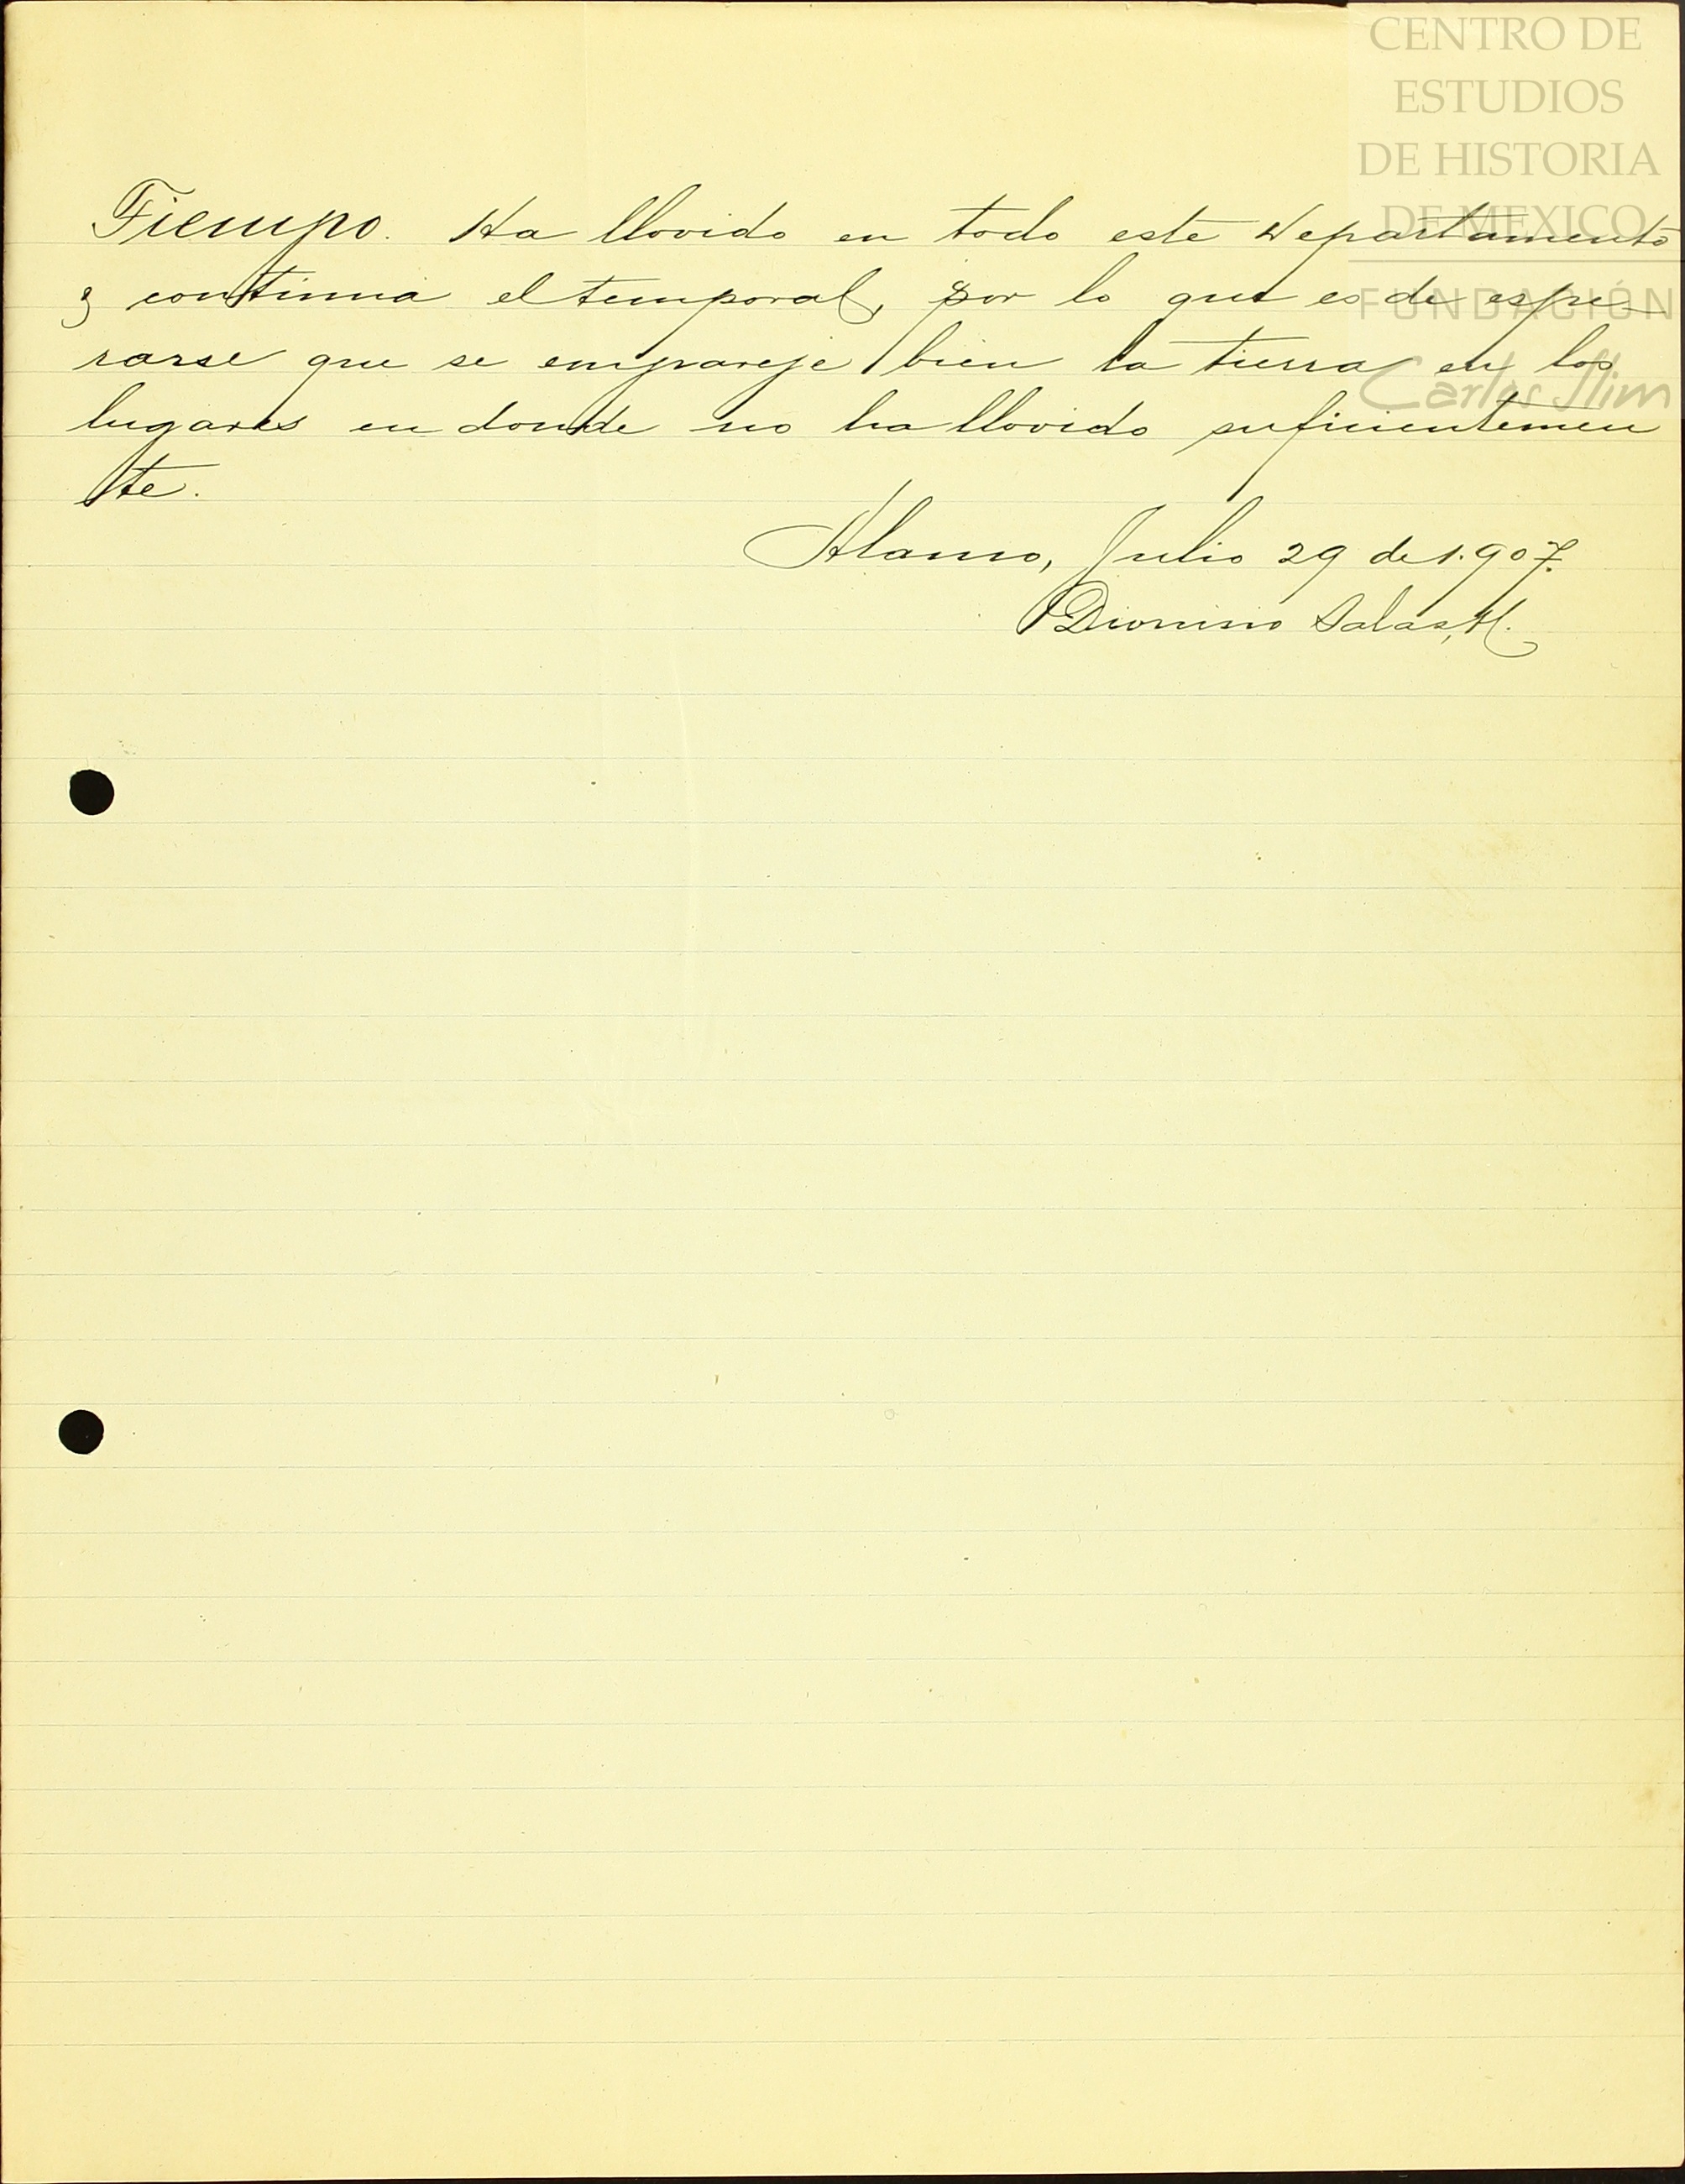 CENTRO DE
ESTUDIOS
DE HISTORIA
DE MEXICO
FUNDACIÓN
Carlos Slim
Tiempo. Ha llovido en todo este Departamento
y continua el temporal, por lo que es de espe-
rarse que se empareje bien la tierra en los
lugares en donde no ha llovido suficientemen
te.
Alamo, Julio 29 de 1.907.
Dionisio Salas, H.